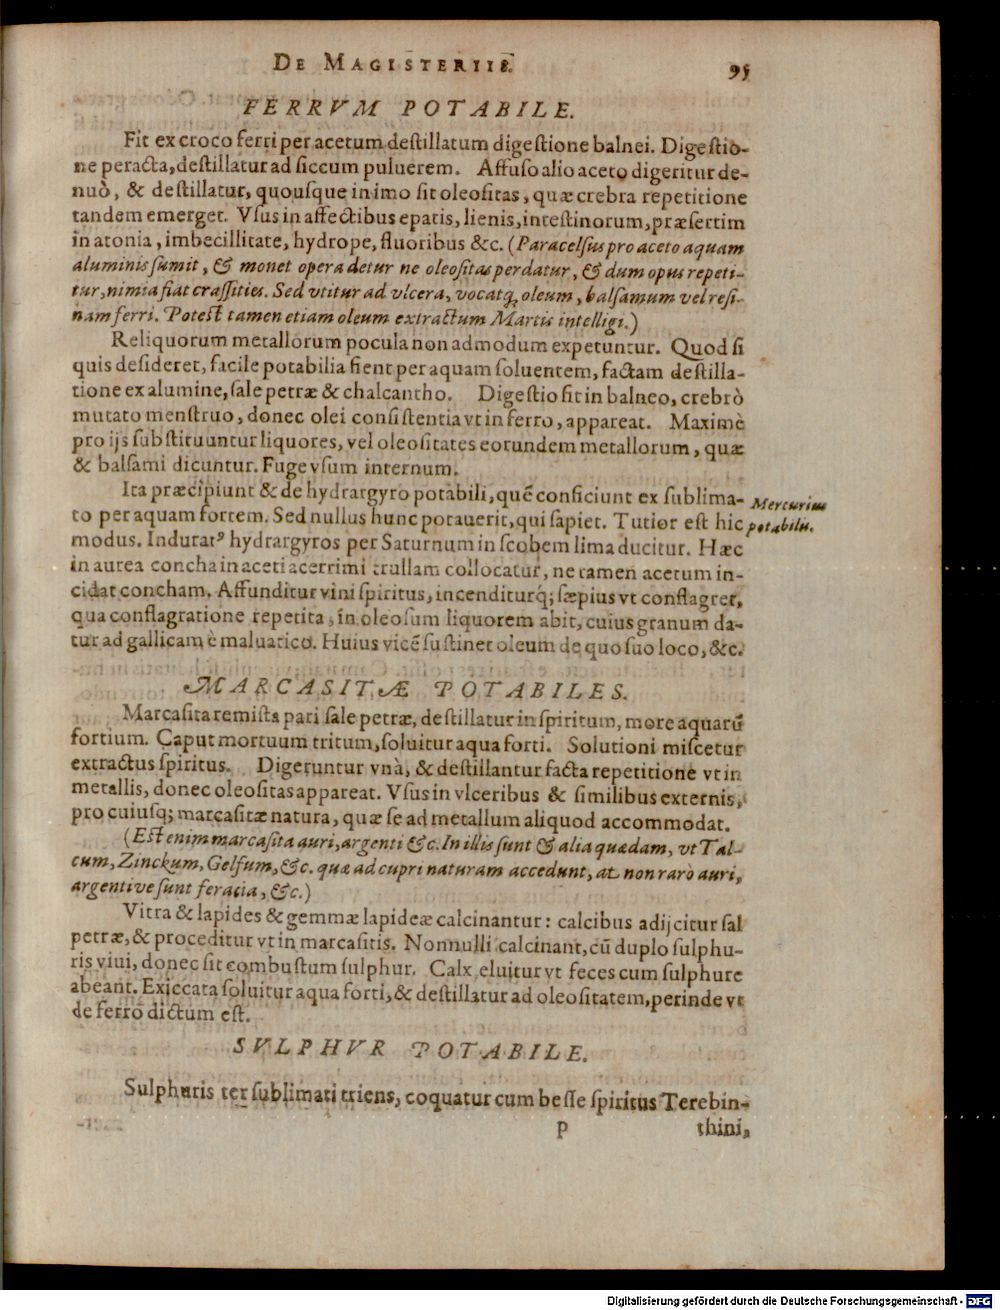 DE MAGISTERIIS. 95
FERRVM POTABILE.
Fit ex croco ferri per acetum destillatum digestione balnei. Digestio-
ne peracta, destillatur ad siccum puluerem. Affuso alio aceto digeritur de-
nuò, & destillatur, quousque in imo sit oleositas, quæ crebra repetitione
tandem emerget. Vsus in affectibus epatis, lienis, intestinorum, præsertim
in atonia, imbecillitate, hydrope, fluoribus &c. (Paracelsus pro aceto aquam
aluminis sumit, & monet opera detur ne oleositas perdatur, & dum opus repeti-
tur, nimia fiat crassities. Sed vtitur ad vlcera, vocatq; oleum, balsamum vel resi-
nam ferri. Potest tamen etiam oleum extractum Martis intelligi.)
Reliquorum metallorum pocula non admodum expetuntur. Quod si
quis desideret, facile potabilia fient per aquam soluentem, factam destilla-
tione ex alumine, sale petræ & chalcantho. Digestio fit in balneo, crebrò
mutato menstruo, donec olei consistentia vt in ferro, appareat. Maximè
pro ijs substituuntur liquores, vel oleositates eorundem metallorum, quæ
& balsami dicuntur. Fuge vsum internum.
Ita præcipiunt & de hydrargyro potabili, quē conficiunt ex sublima-
to per aquam fortem. Sed nullus hunc potauerit, qui sapiet. Tutior est hic
Mercurius
potabilis.
modus. Indurat⁹ hydrargyros per Saturnum in scobem lima ducitur. Hæc
in aurea concha in aceti acerrimi trullam collocatur, ne tamen acetum in-
cidat concham. Affunditur vini spiritus, incenditurq́; sæpius vt conflagret,
qua conflagratione repetita, in oleosum liquorem abit, cuius granum da-
tur ad gallicam è maluatico. Huius vicē sustinet oleum de quo suo loco, &c.
MARCASITÆ POTABILES.
Marcasita remista pari sale petræ, destillatur in spiritum, more aquarū
fortium. Caput mortuum tritum, soluitur aqua forti. Solutioni miscetur
extractus spiritus. Digeruntur vnà, & destillantur facta repetitione vt in
metallis, donec oleositas appareat. Vsus in vlceribus & similibus externis,
pro cuiusq; marcasitæ natura, quæ se ad metallum aliquod accommodat.
(Est enim marcasita auri, argenti &c. In illis sunt & alia quædam, vt Tal-
cum, Zinckum, Gelfum, &c. quæ ad cupri naturam accedunt, at non raro auri,
argentive sunt feracia, &c.)
Vitra & lapides & gemmæ lapideæ calcinantur: calcibus adijcitur sal
petræ, & proceditur vt in marcasitis. Nonnulli calcinant, cū duplo sulphu-
ris viui, donec sit combustum sulphur. Calx eluitur vt feces cum sulphure
abeant. Exiccata soluitur aqua forti, & destillatur ad oleositatem, perinde vt
de ferro dictum est.
SVLPHVR POTABILE.
Sulphuris ter sublimati triens, coquatur cum besse spiritus Terebin-
p thini,
Digitalisierung gefördert durch die Deutsche Forschungsgemeinschaft - DFG